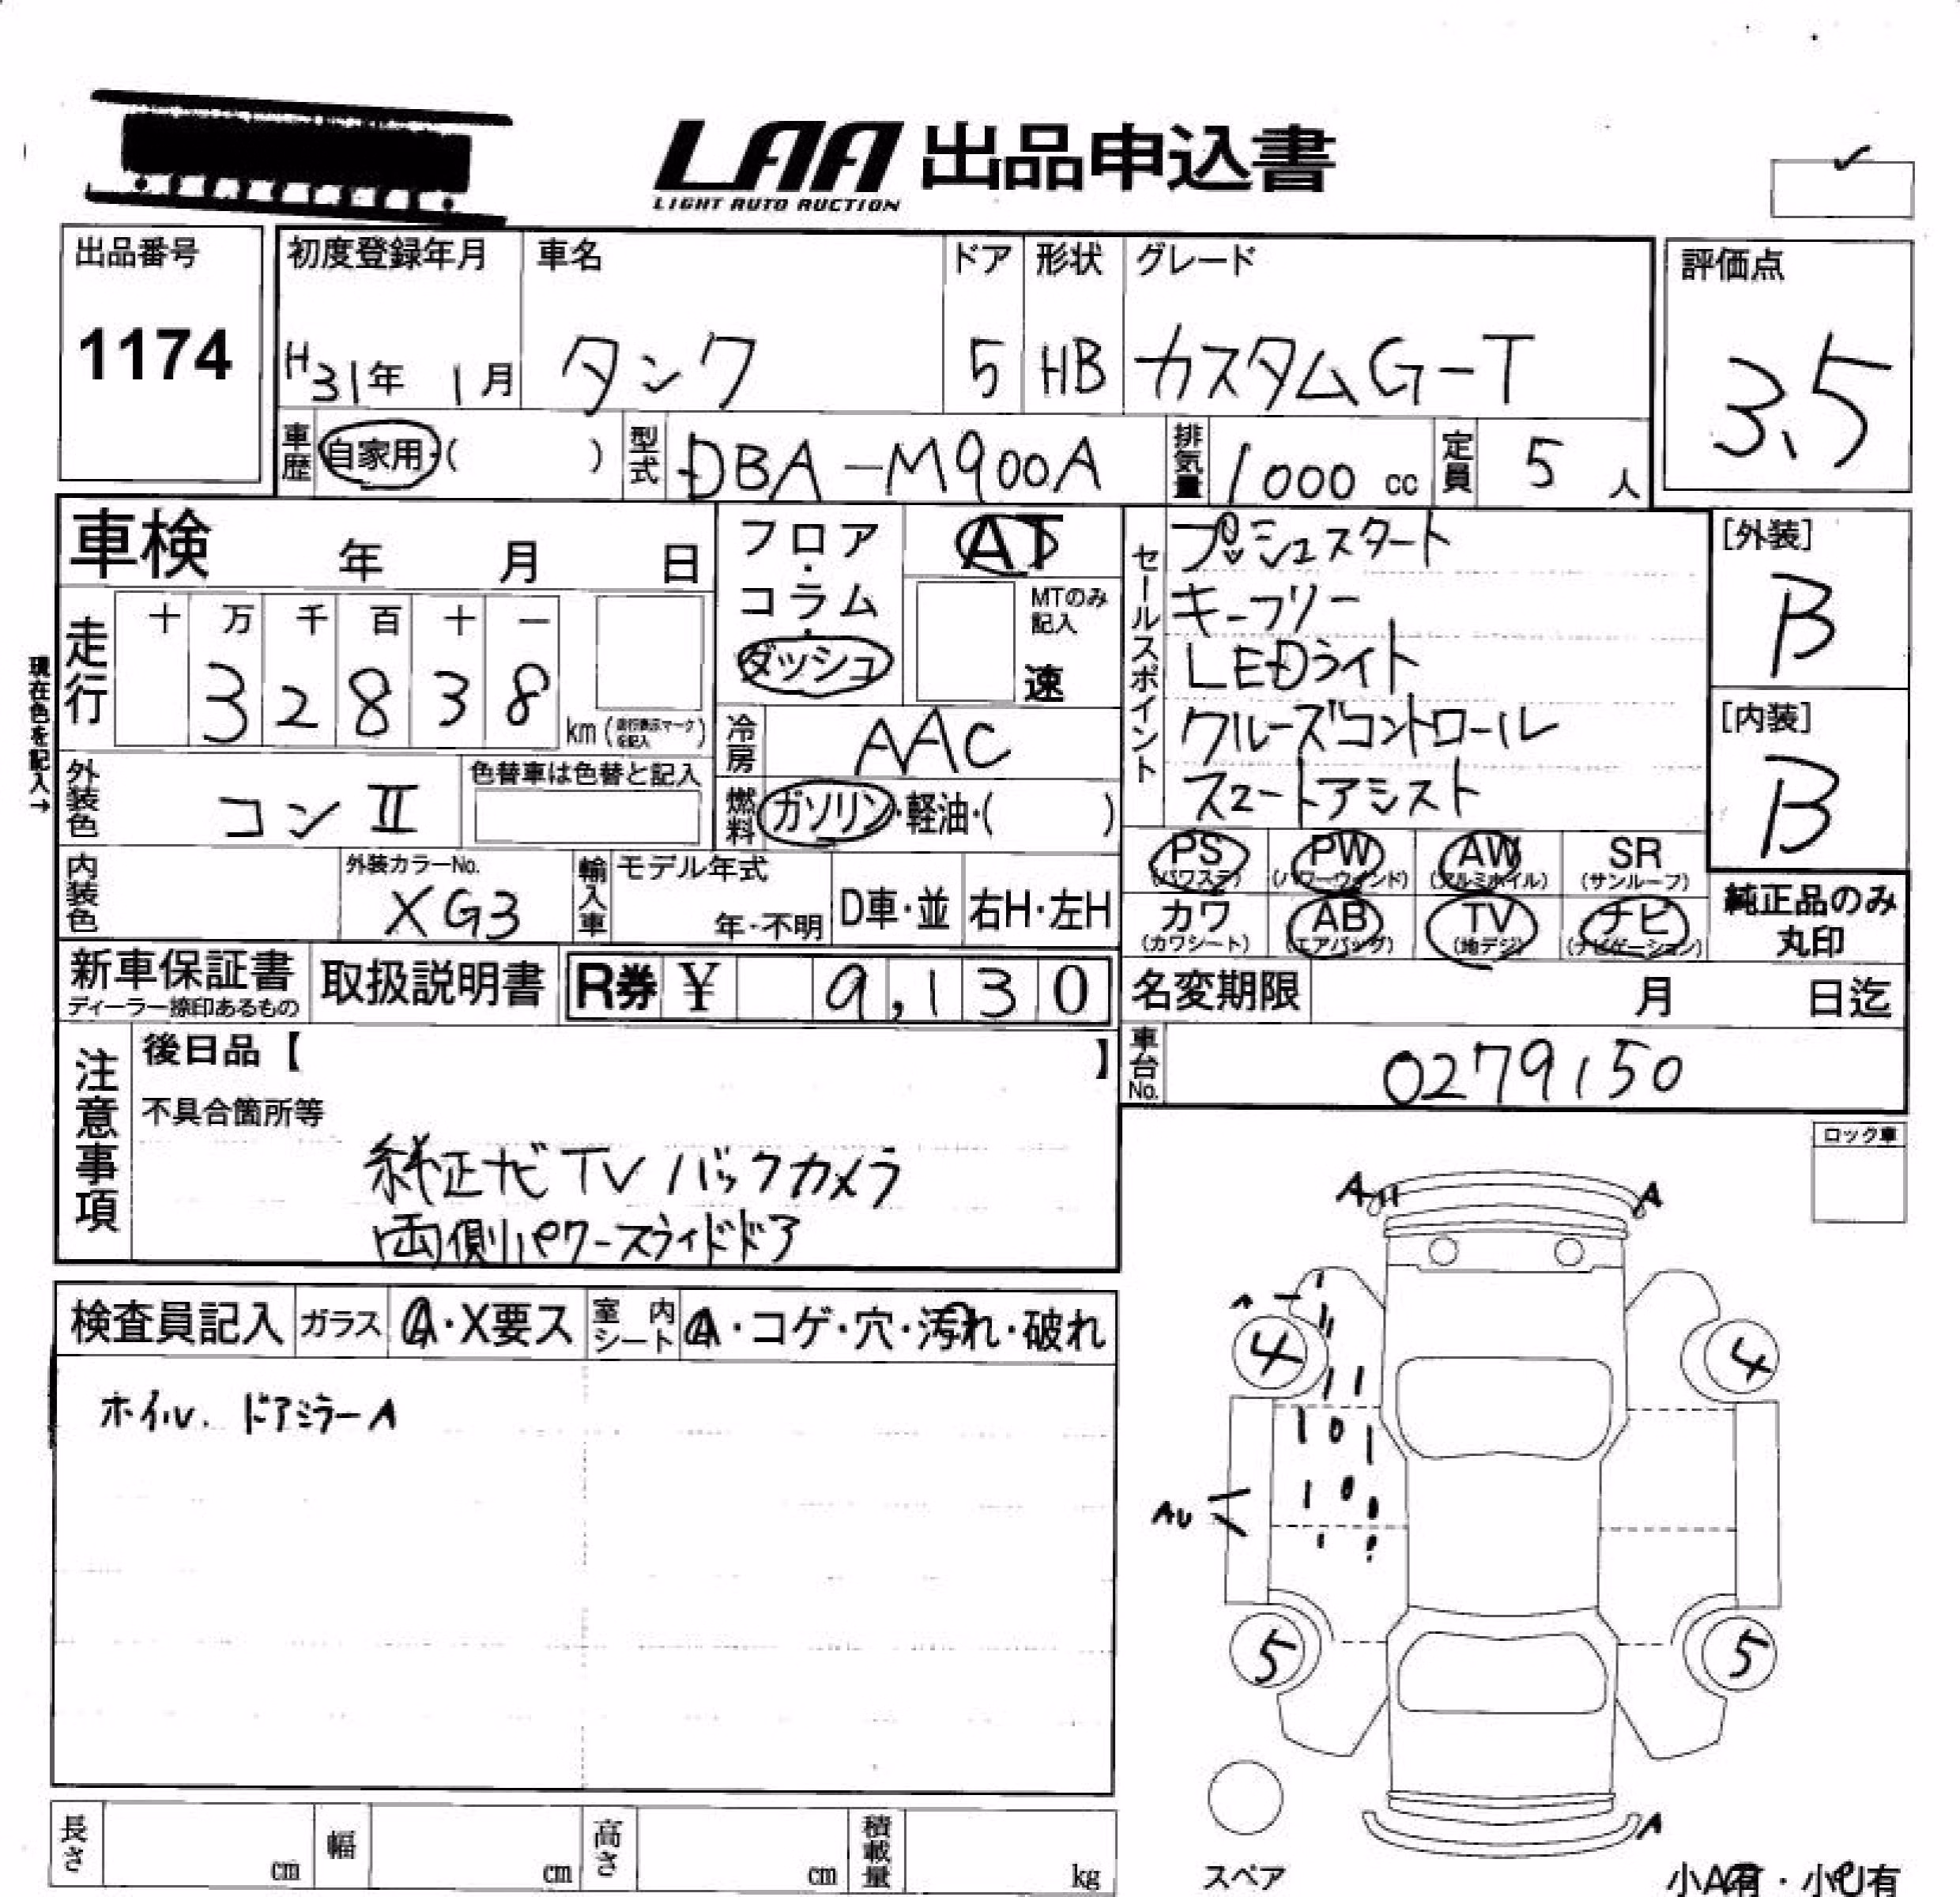 LAA 出品申込書
LIGHT AUTO AUCTION
出品番号
1174
初度登録年月
H31年 1月
車名
タンク
ドア
5
形状
HB
グレード
カスタムG-T
評価点
3.5
車歴 自家用・( )
型式 DBA-M900A
排気量 1000 cc
定員 5 人
現在色を記入→
車検 年 月 日
走行
十 万 千 百 十 一
3 2 8 3 8
km (走行表示マークを記入)
フロア・コラム・ダッシュ
AT
MTのみ記入
速
冷房 AAC
燃料 ガソリン・軽油・( )
セールスポイント
プッシュスタート
キーフリー
LEDライト
クルーズコントロール
スマートアシスト
[外装]
B
[内装]
B
外装色 コンII
色替車は色替と記入
内装色
外装カラーNo.
XG3
輸入車
モデル年式
年・不明
D車・並
右H・左H
PS (パワステ)
PW (パワーウィンド)
AW (アルミホイル)
SR (サンルーフ)
カワ (カワシート)
AB (エアバッグ)
TV (地デジ)
ナビ (ナビゲーション)
純正品のみ
丸印
新車保証書
ディーラー捺印あるもの
取扱説明書
R券 ¥ 9,130
名変期限 月 日迄
車台No. 0279150
注意事項
後日品【 】
不具合箇所等
純正ナビTV バックカメラ
両側パワースライドドア
ロック車
検査員記入
ガラス A・X要ス
室内シート A・コゲ・穴・汚れ・破れ
ホイル. ドアミラーA
A
A
4
4
AU
5
5
A
スペア
小A有・小U有
長さ cm
幅 cm
高さ cm
積載量 kg